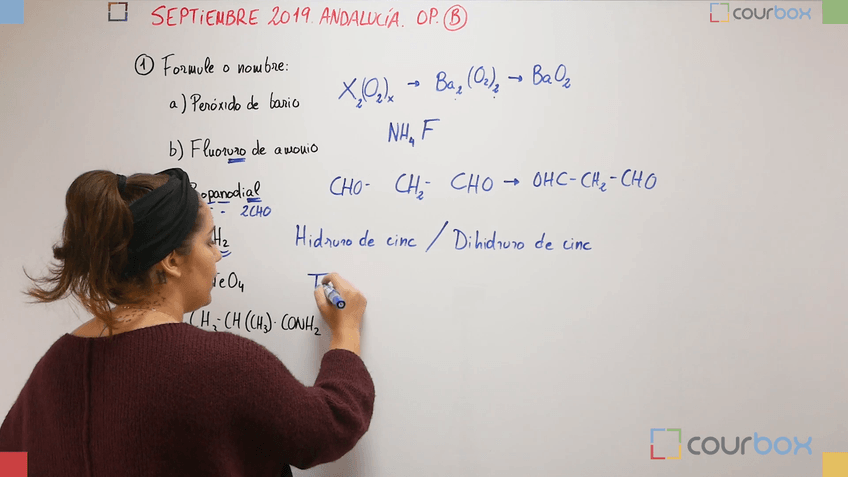 SEPTIEMBRE 2019. ANDALUCÍA. OP. B
courbox
1 Formule o nombre:
a) Peróxido de bario
X₂(O₂)ₓ → Ba₂(O₂)₂ → BaO₂
b) Fluoruro de amonio
NH₄F
CHO- CH₂- CHO → OHC-CH₂-CHO
2CHO
H₂
Hidruro de cinc / Dihidruro de cinc
eO₄
T
CH₃-CH(CH₃)-CONH₂
courbox